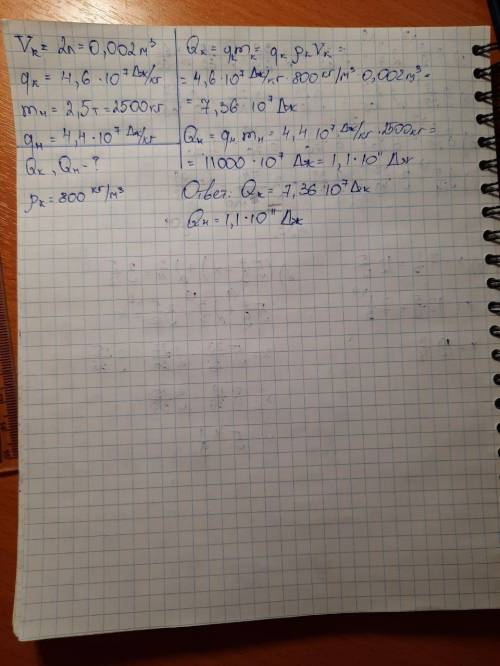 Vк = 2л = 0,002м³
qк = 4,6 · 10⁷ Дж/кг
mн = 2,5т = 2500кг
qн = 4,4 · 10⁷ Дж/кг
Qк, Qн - ?
ρк = 800 кг/м³
Qк = qmк = qк ρк Vк =
= 4,6 · 10⁷ Дж/кг · 800 кг/м³ · 0,002м³ =
= 7,36 · 10⁷ Дж
Qн = qн mн = 4,4 · 10⁷ Дж/кг · 2500кг =
= 11000 · 10⁷ Дж = 1,1 · 10¹¹ Дж
Ответ: Qк = 7,36 · 10⁷ Дж
Qн = 1,1 · 10¹¹ Дж